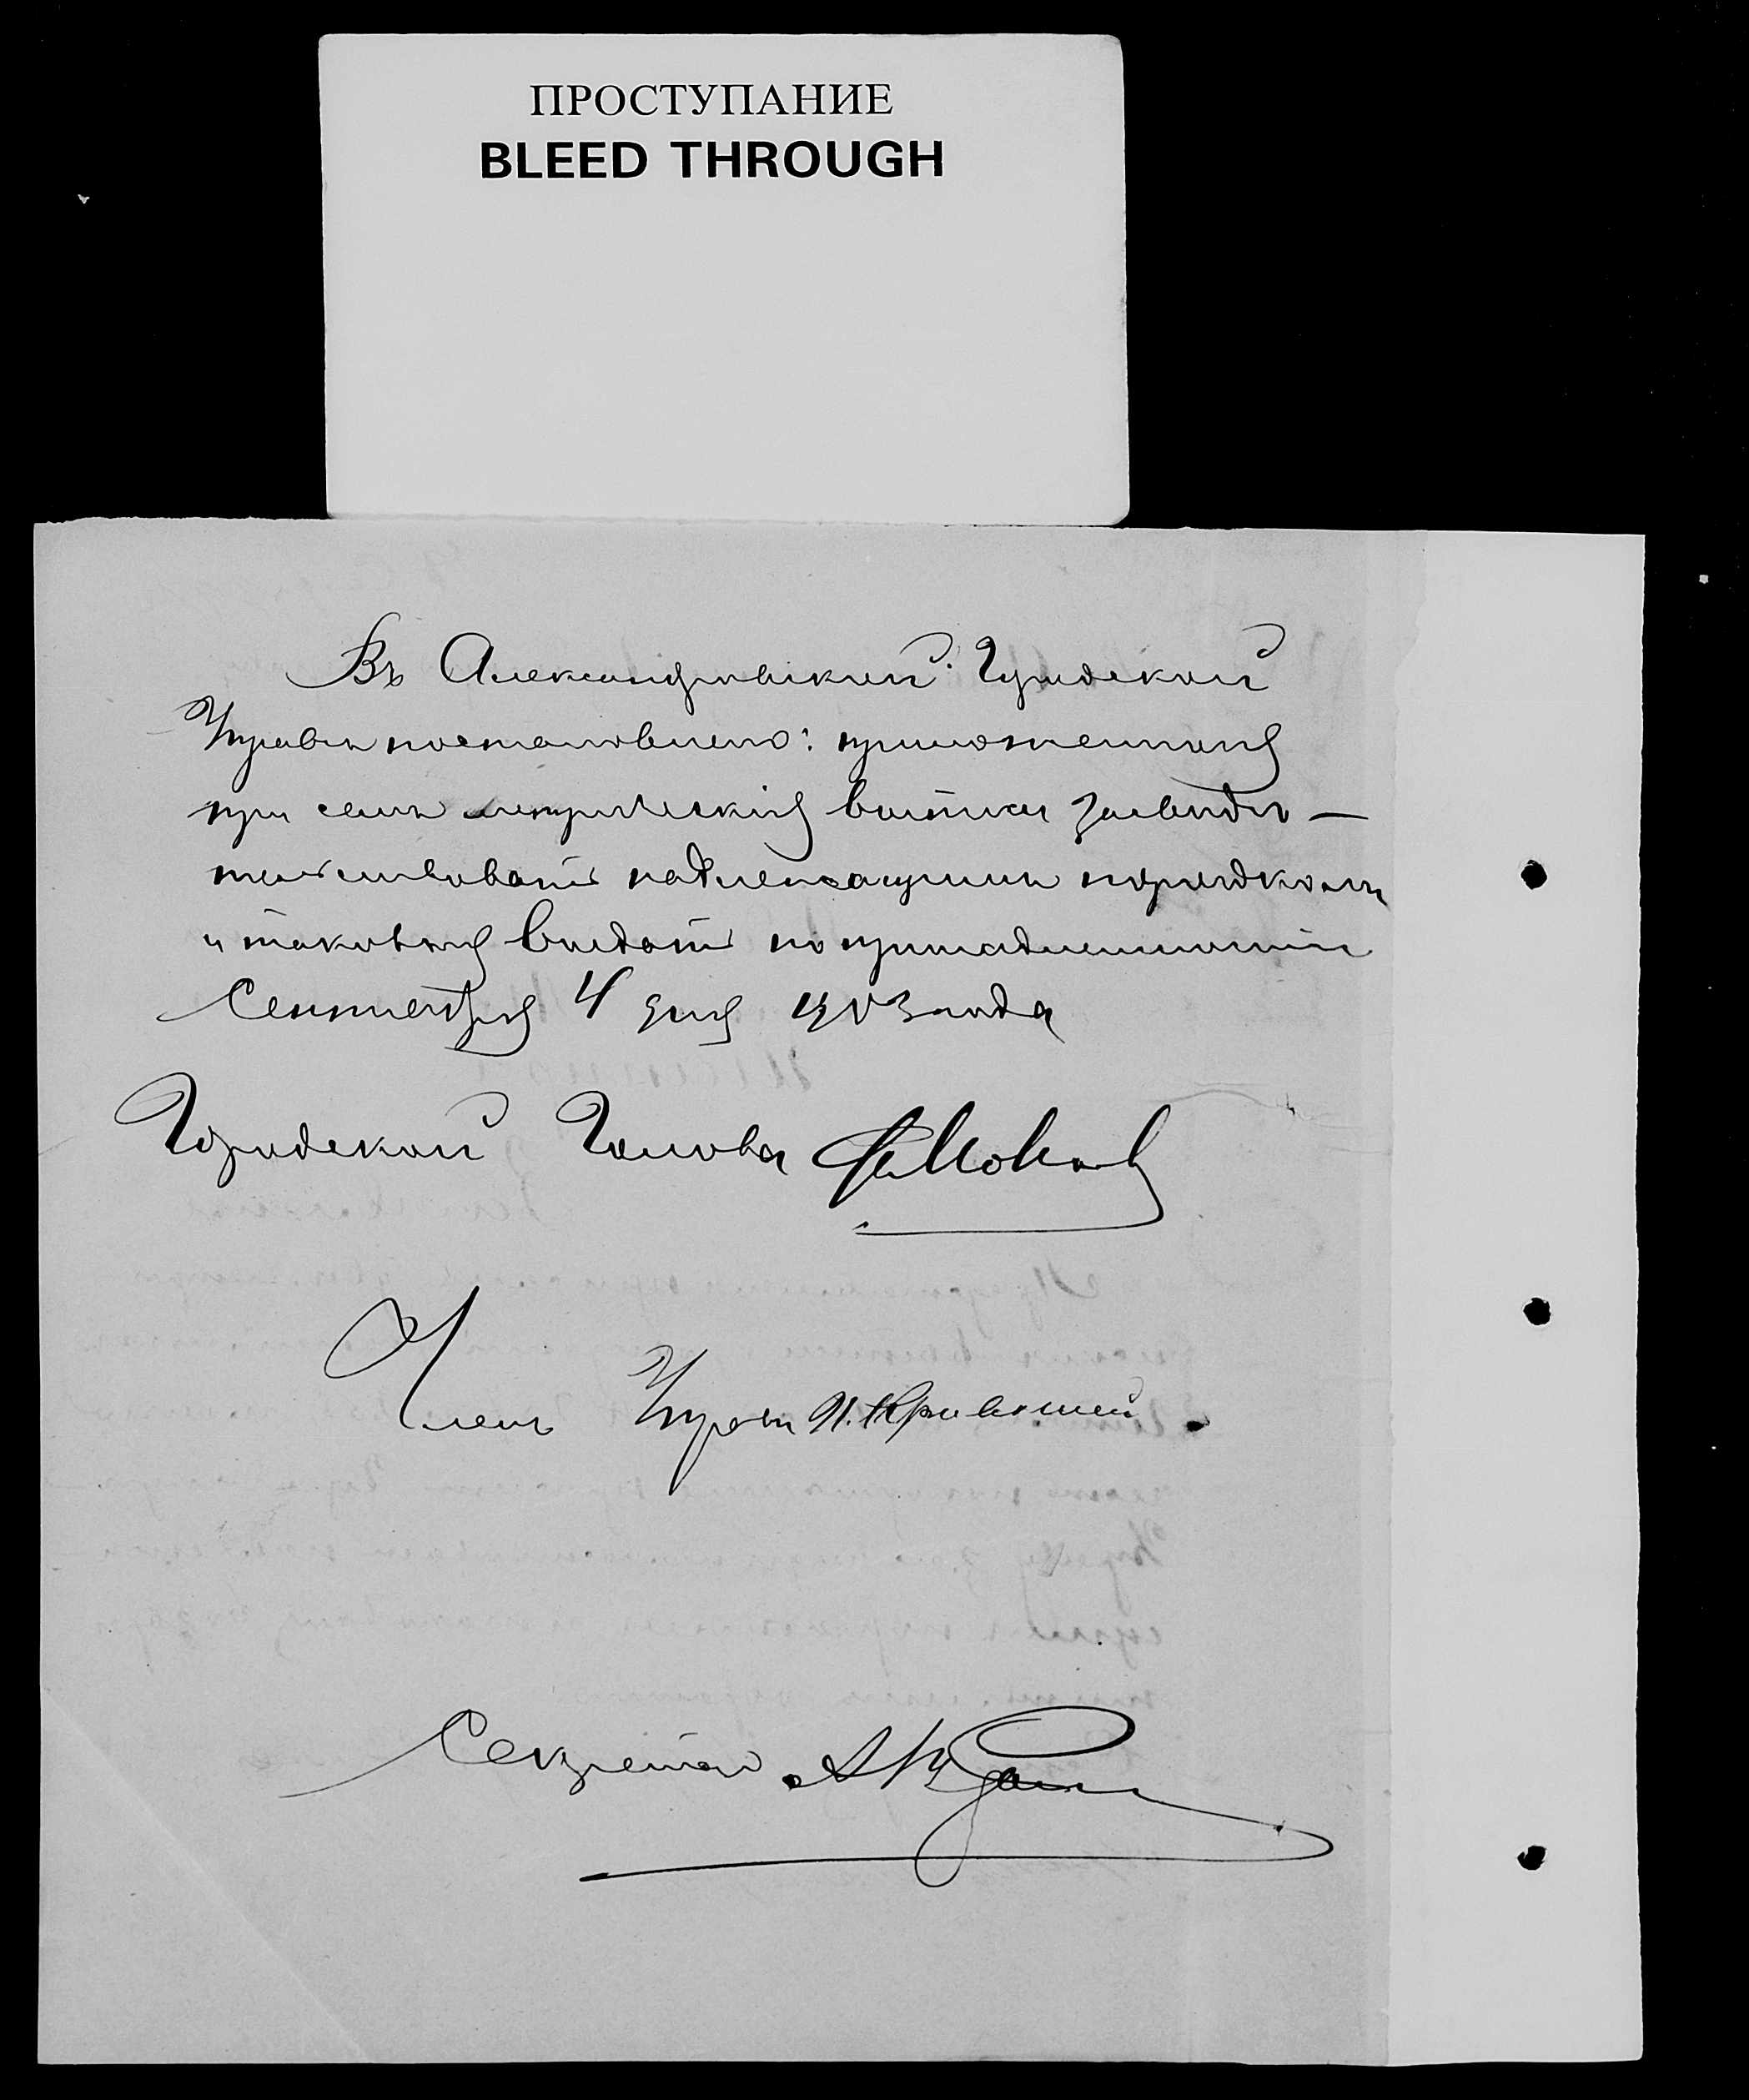 ПРОСТУПАНИЕ
BLEED THROUGH
Въ Александровской Городской
Управѣ постановлено: приложенныя
при семъ метрическія выписи засвидѣ-
тельствовать надлежащимъ порядкомъ
и таковыя выдать по принадлежности
Сентября 4 дня 1903 года
Городской Голова Ф. Мовчан
Членъ Управы
Секретарь